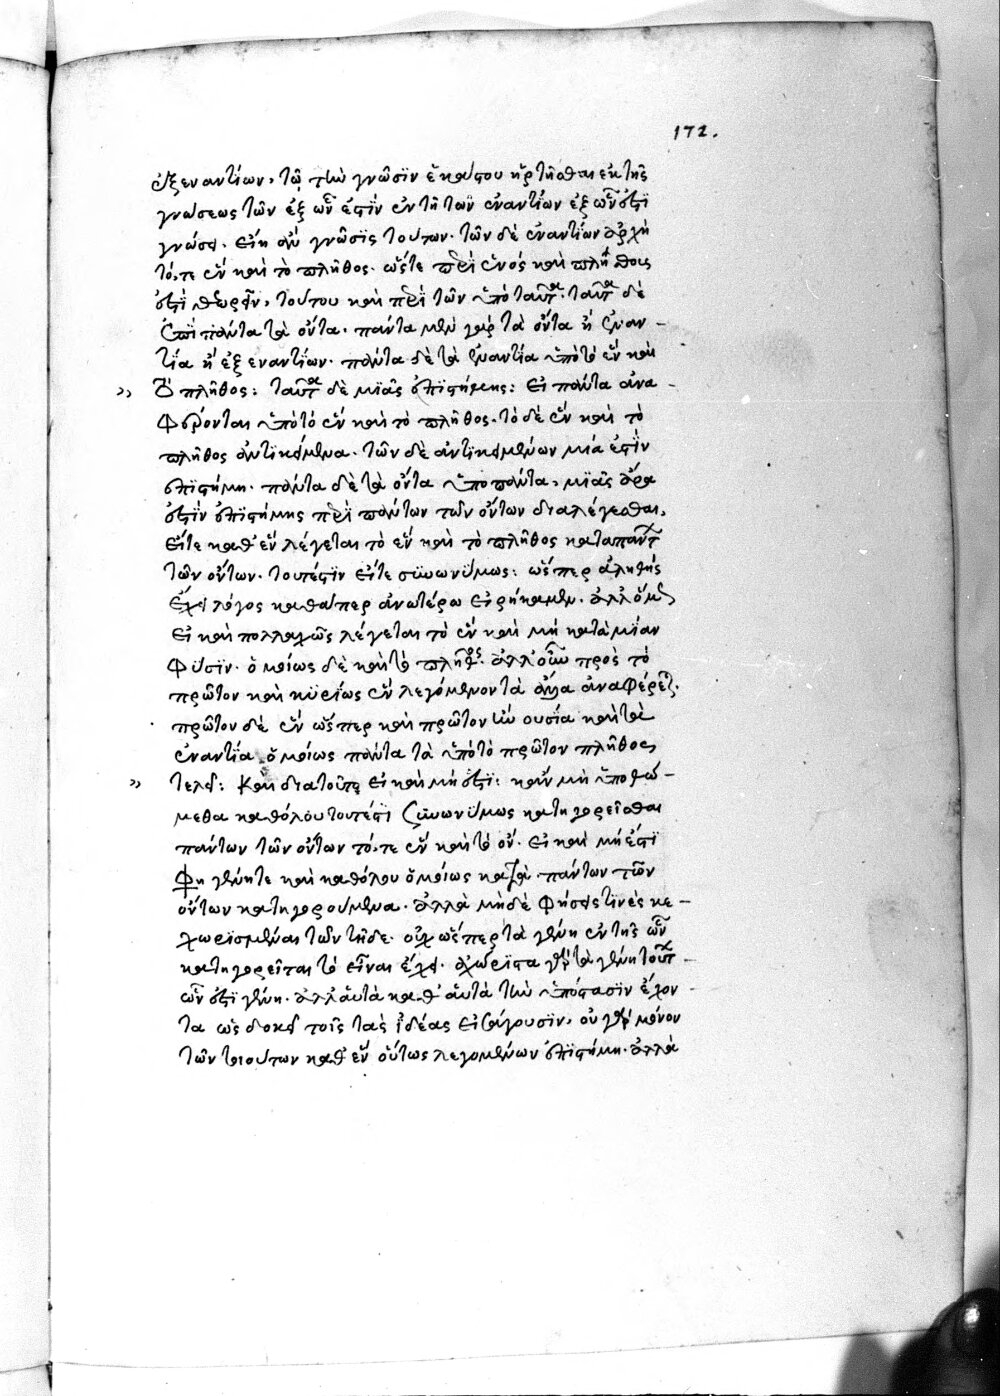 172.
ἐξ ἐναντίων, τῷ τὴν γνῶσιν ἑκάστου ἠρτῆσθαι ἐκ τῆς
γνώσεως τῶν ἐξ ὧν ἐστὶν ἐν τῇ τῶν ἐναντίων ἐξ ὧν ἐστὶ
γνώσει. εἴη ἂν γνῶσις τούτων. τῶν δὲ ἐναντίων ἀρχὴ
τό, τε ἓν καὶ τὸ πλῆθος. ὥστε περὶ ἑνός καὶ πλήθους
ἐστὶ θεωρεῖν, τούτου καὶ περὶ τῶν ὑπὸ ταῦτα. ταῦτα δὲ
ἐπὶ πάντα τὰ ὄντα. πάντα μὲν γὰρ τὰ ὄντα ἢ ἐναν-
τία ἢ ἐξ ἐναντίων. πάντα δὲ τὰ ἐναντία ὑπὸ τὸ ἓν καὶ
» τὸ πλῆθος: ταῦτα δὲ μιᾶς ἐπιστήμης: Εἰ πάντα ἀνα-
φέρονται ὑπὸ τὸ ἓν καὶ τὸ πλῆθος. τὸ δὲ ἓν καὶ τὸ
πλῆθος ἀντικείμενα. τῶν δὲ ἀντικειμένων μία ἐστὶν
ἐπιστήμη. πάντα δὲ τὰ ὄντα ὑπὸ πάντα, μιᾶς ἄρα
ἐστὶν ἐπιστήμης περὶ πάντων τῶν ὄντων διαλέγεσθαι.
Εἴτε καθ' ἓν λέγεται τὸ ἓν καὶ τὸ πλῆθος κατὰ πάντων
τῶν ὄντων. τουτέστιν εἴτε συνωνύμως: ὥσπερ ἀληθὴς
ἔχει λόγος καθάπερ ἀνωτέρω εἰρήκαμεν. ἀλλ' ὅμως
εἰ καὶ πολλαχῶς λέγεται τὸ ἓν καὶ μὴ κατὰ μίαν
φύσιν. ὁμοίως δὲ καὶ τὸ πλῆθος. ἀλλ' οὖν πρὸς τὸ
πρῶτον καὶ κυρίως ἓν λεγόμενον τὰ ἄλλα ἀναφέρεται.
πρῶτον δὲ ἓν ὥσπερ καὶ πρῶτον ὂν οὐσία καὶ τὰ
ἐναντία ὁμοίως πάντα τὰ ὑπὸ τὸ πρῶτον πλῆθος
» τελεῖ: Καὶ διατοῦτο εἰ καὶ μή ἐστι: κἂν μὴ ὑποθώ-
μεθα καθόλου τουτέστι συνωνύμως κατηγορεῖσθαι
πάντων τῶν ὄντων τό, τε ἓν καὶ τὸ ὄν. εἰ καὶ μή ἐστι
φη γένη τε καὶ καθόλου ὁμοίως κατὰ πάντων τῶν
ὄντων κατηγορούμενα. ἀλλὰ μηδὲ φήσει τινὲς κε-
χωρισμέναι τῶν τῇδε. οὐχ ὥσπερ τὰ γένη ἐν τῆς ὧν
κατηγορεῖται τὸ εἶναι ἔχει. ἀχώριστα γὰρ τὰ γένη τούτων
ὧν ἐστὶ γένη. ἀλλ' αὐτὰ καθ' αὑτὰ τὴν ὑπόστασιν ἔχον
τα ὡς δοκεῖ τοῖς τὰς ἰδέας εἰσάγουσιν, οὐ γὰρ μόνον
τῶν τοιούτων καθ' ἓν οὕτως λεγομένων ἐπιστήμη. ἀλλὰ